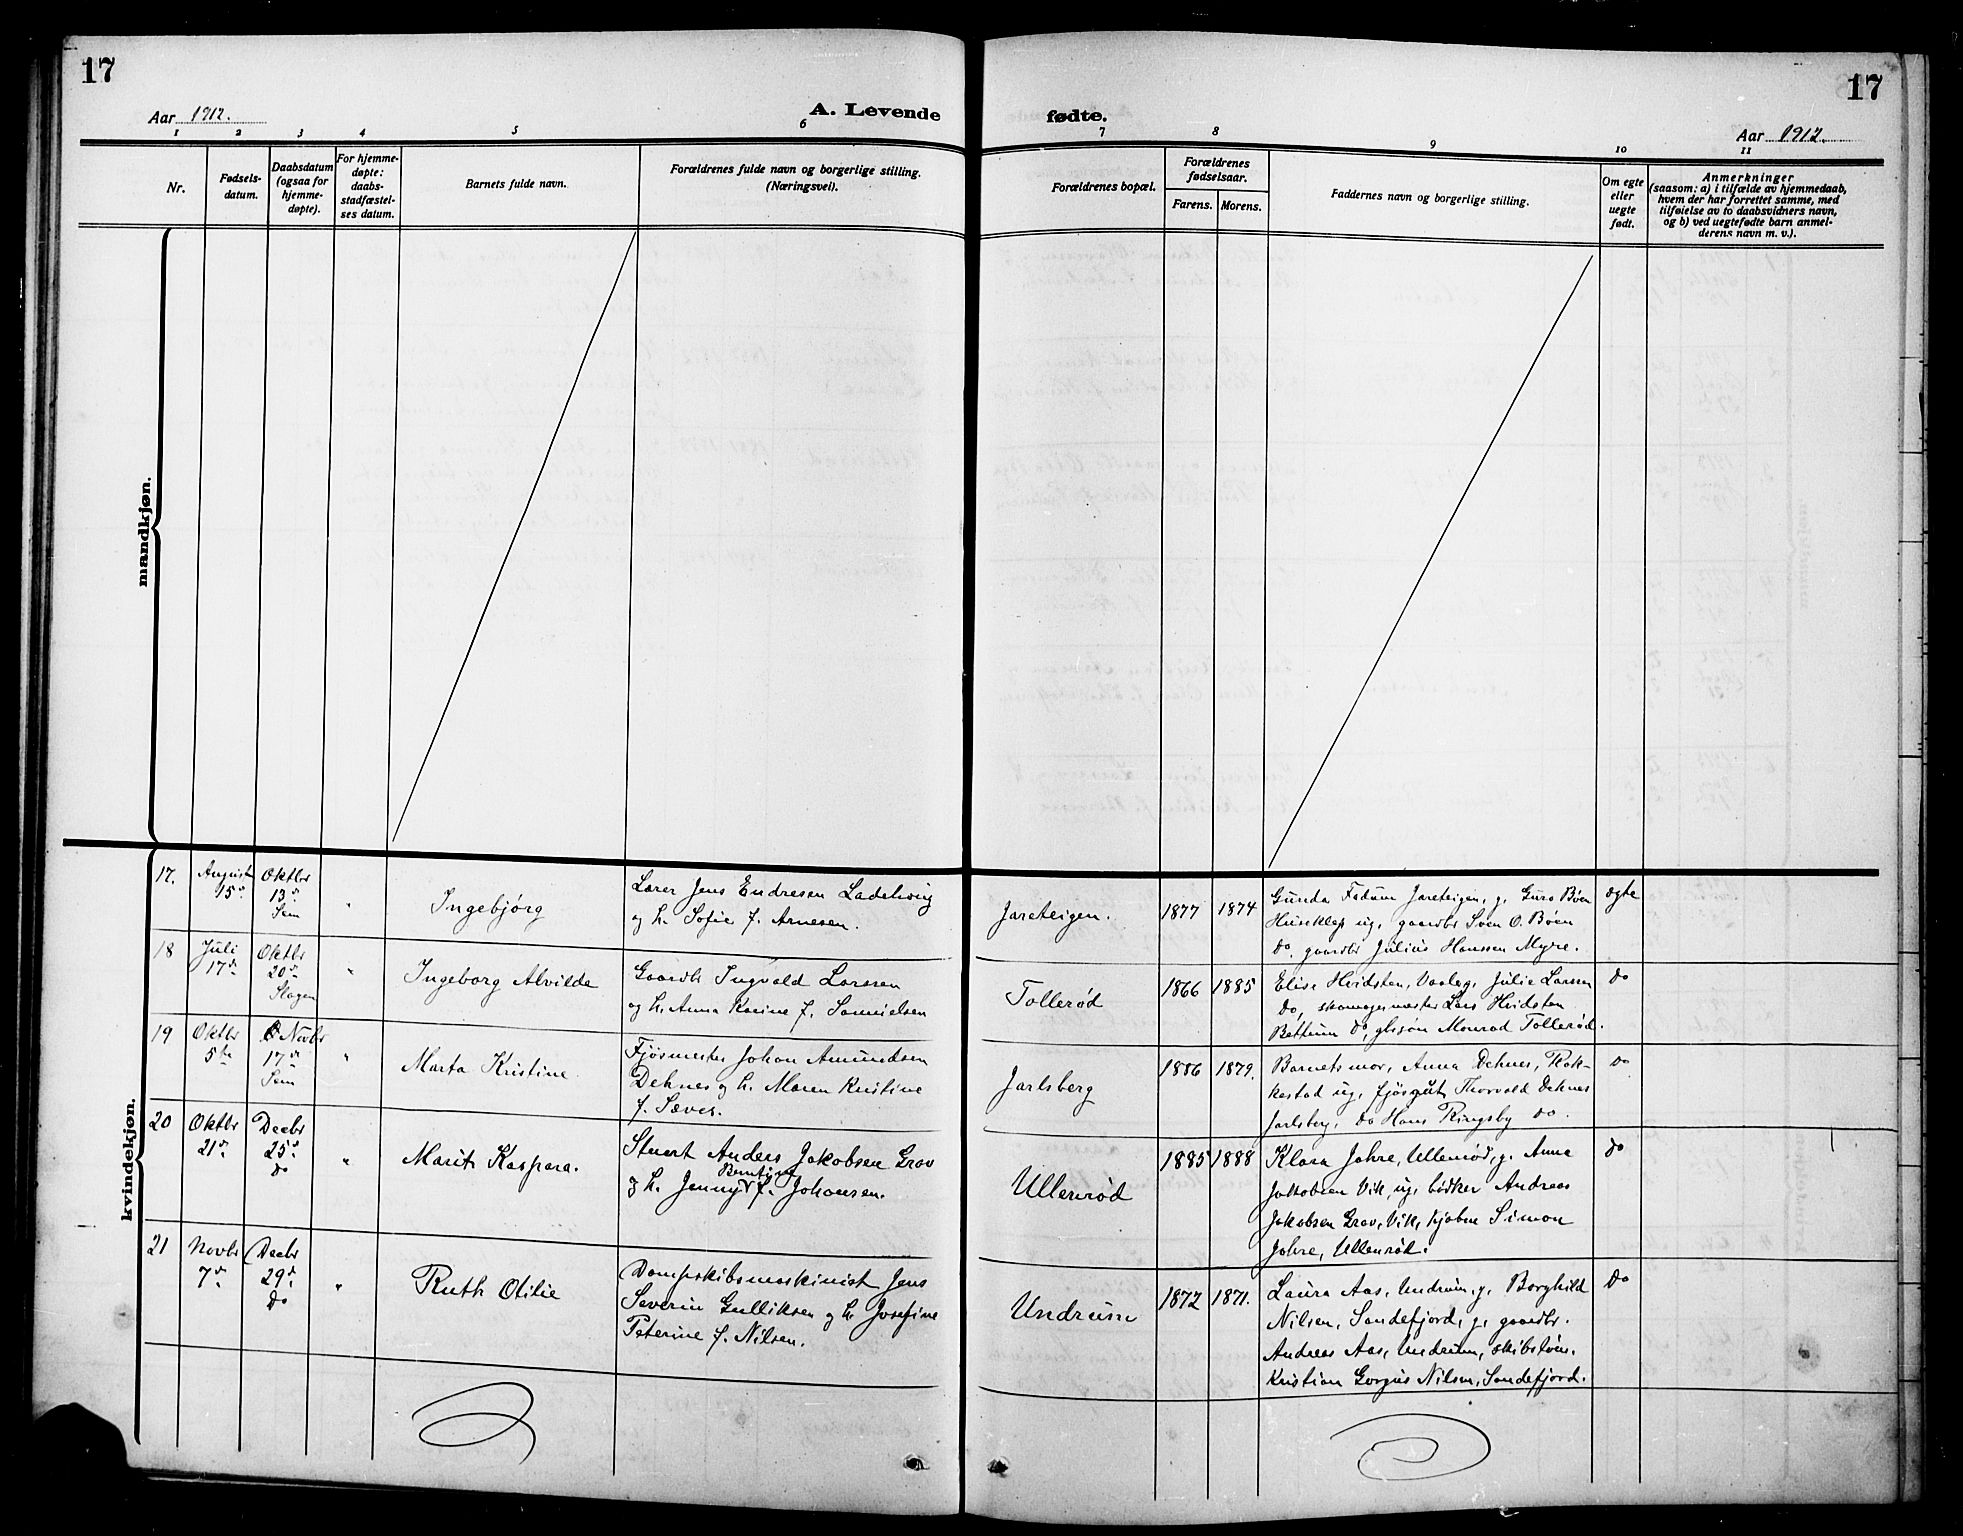 17
17
Aar 1912.
A. Levende
fødte.
Aar 1912.
1 2 3 4 5 6 7 8 9 10 11
Nr.
Fødsels-
datum.
Daabsdatum
(ogsaa for
hjemme-
døpte).
For hjemme-
døpte:
daabs-
stadfæstel-
ses datum.
Barnets fulde navn.
Forældrenes fulde navn og borgerlige stilling.
(Næringsvei).
Forældrenes bopæl.
Forældrenes
fødselsaar.
Farens. Morens.
Faddernes navn og borgerlige stilling.
Om egte
eller
uegte
født.
Anmerkninger
(saasom: a) i tilfælde av hjemmedaab,
hvem der har forrettet samme, med
tilføielse av to daabsvidners navn,
og b) ved uegtefødte barn anmel-
derens navn m. v.).
mandkjøn.
kvindekjøn.
17.
August
15d.
Oktbr
13d.
Sem
"
Ingebjörg
Lærer Jens Endresen Ladehoug
og h. Sofie f. Arnesen.
Jareteigen.
1877
1874
Gunda Fadum Jareteigen, g. Guro Böen
Huseklep ug. gaardbr Sven O. Böen
do. gaardbr Julius Hanssen Myre.
ægte
18
Juli
17d
Oktbr
20d
Slagen
"
Ingeborg Alvilde
Gaardb Ingvald Larssen
og h. Anna Karine f. Samuelsen
Tollerød
1866
1885
Elise Hvidsten, Vaaleg, Julie Larssen
do, skomagermester Lars Hvidsten
Bettum do, gbsøn Monrad Tollerød.
do
19
Oktbr
5te
Novbr
17d
Sem
"
Marta Kristine
Fjösmester Johan Amundsen
Dehnes og h. Maren Kristine
f. Sæves.
Jarlsberg
1886
1879.
Barnets mor, Anna Dehnes, Rak-
kestad ug. fjösgut Thorvald Dehnes
Jarlsberg, do Hans Ringsby do.
do
20
Oktbr
21d
Decbr
25d
do
"
Marit Kaspara.
Stuert Anders Jakobsen Grav
Bentine
og h. Jenny f. Johansen.
Ullenrød
1885
1888
Klara Jahre, Ullenrød, g. Anna
Jakobsen Vik, ug. bödker Andreas
Jakobsen Grav, Vik, kjøbm Simon
Jahre, Ullenrød.
do
21
Novbr
7d
Decbr
29d
do
"
Ruth Otilie
Dampskibsmaskinist Jens
Severin Gulliksen og h Josefine
Peterine f. Nilsen.
Undrum
1872
1871.
Laura Aas, Undrum, g. Borghild
Nilsen, Sandefjord, g. gaardbr.
Andreas Aas, Undrum, skibstøm.
Kristian Gorgus Nilsen, Sandefjord.
do